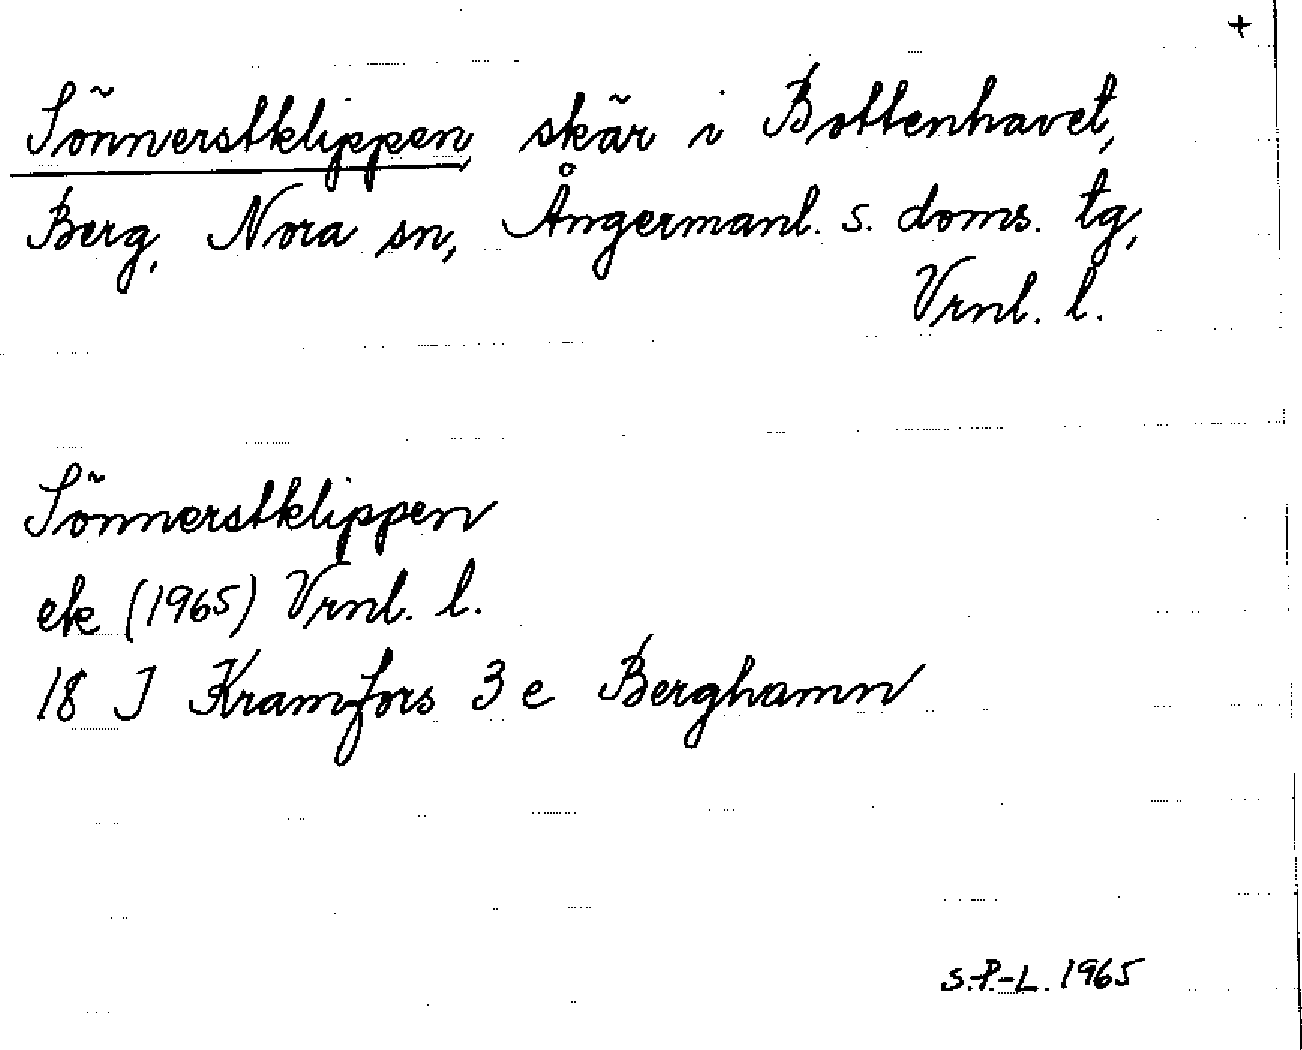 +
Sönnerstklippen, skär i Bottenhavet,
Berg, Nora sn, Ångermanl. s. doms. tg,
Vrnl. l.
Sönnerstklippen
ek (1965) Vrnl. l.
18 J Kramfors 3 e Berghamn
S.-P.-L. 1965